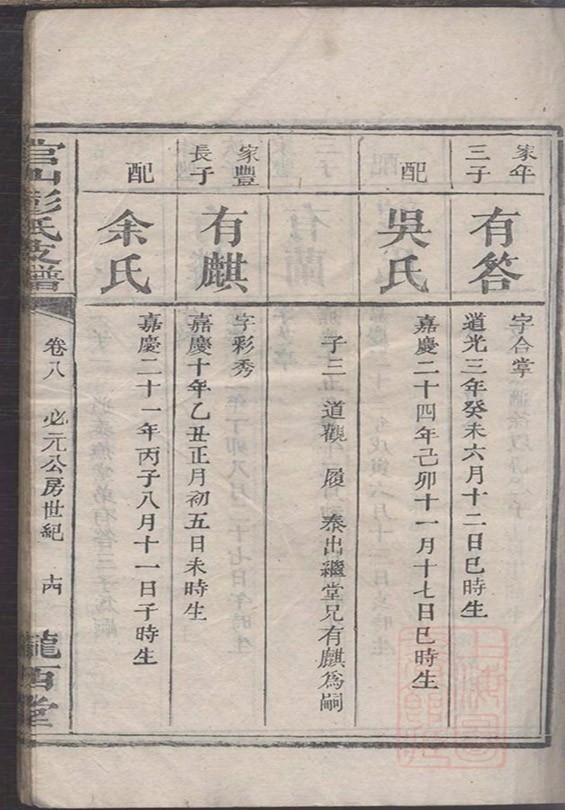 家年
三子
有答
字合掌
道光三年癸未六月十二日巳時生
配
吳氏
嘉慶二十四年己卯十一月十七日巳時生
子三 道觀 履 泰出繼堂兄有麒為嗣
家豐
長子
有麒
字彩秀
嘉慶十年乙丑正月初五日未時生
配
余氏
嘉慶二十一年丙子八月十一日子時生
官山彭氏支譜
卷八 必元公房世紀 十四
隴西堂